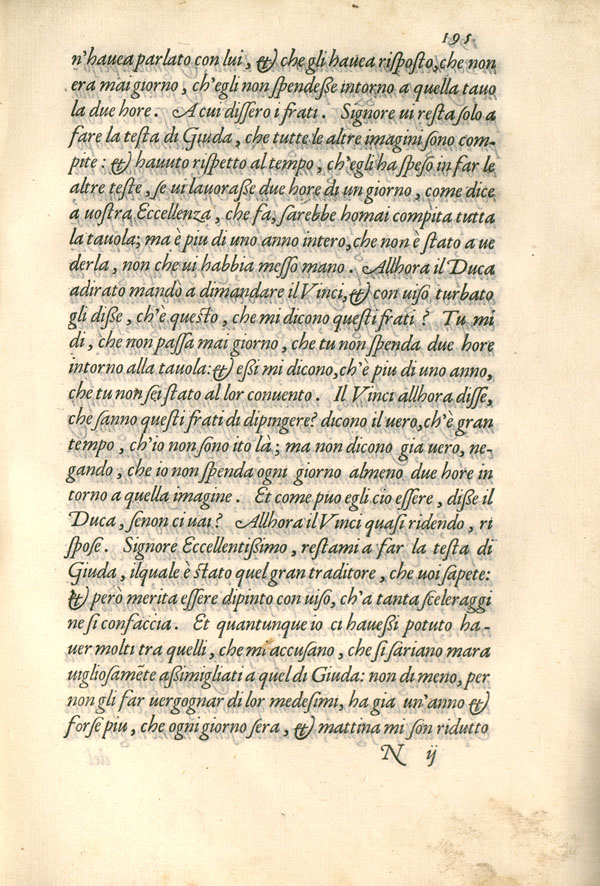 195
n'hauea parlato con lui, & che gli hauea risposto, che non
era mai giorno, ch'egli non spendeße intorno a quella tauo
la due hore. A cui dissero i frati. Signore ui resta solo a
fare la testa di Giuda, che tutte le altre imagini sono com-
pite: & hauuto rispetto al tempo, ch'egli ha speso in far le
altre teste, se ui lauoraße due hore di un giorno, come dice
a uostra Eccellenza, che fa, sarebbe homai compita tutta
la tauola; ma è piu di uno anno intero, che non è stato a ue
derla, non che ui habbia messo mano. Allhora il Duca
adirato mandò a dimandare il Vinci, & con uiso turbato
gli diße, ch'è questo, che mi dicono questi frati? Tu mi
di, che non passa mai giorno, che tu non spenda due hore
intorno alla tauola: & eßi mi dicono, ch'è piu di uno anno,
che tu non sei stato al lor conuento. Il Vinci allhora disse,
che sanno questi frati di dipingere? dicono il uero, ch'è gran
tempo, ch'io non sono ito là; ma non dicono gia uero, ne-
gando, che io non spenda ogni giorno almeno due hore in
torno a quella imagine. Et come puo egli cio essere, diße il
Duca, se non ci uai? Allhora il Vinci quasi ridendo, ri
spose. Signore Eccellentißimo, restami a far la testa di
Giuda, ilquale è stato quel gran traditore, che uoi sapete:
& però merita essere dipinto con uiso, ch'a tanta sceleraggi
ne si confaccia. Et quantunque io ci haueßi potuto ha-
uer molti tra quelli, che mi accusano, che si sariano mara
uigliosamẽte aßimigliati a quel di Giuda: non di meno, per
non gli far uergognar di lor medesimi, ha già un'anno &
forse piu, che ogni giorno sera, & mattina mi son ridutto
N ij